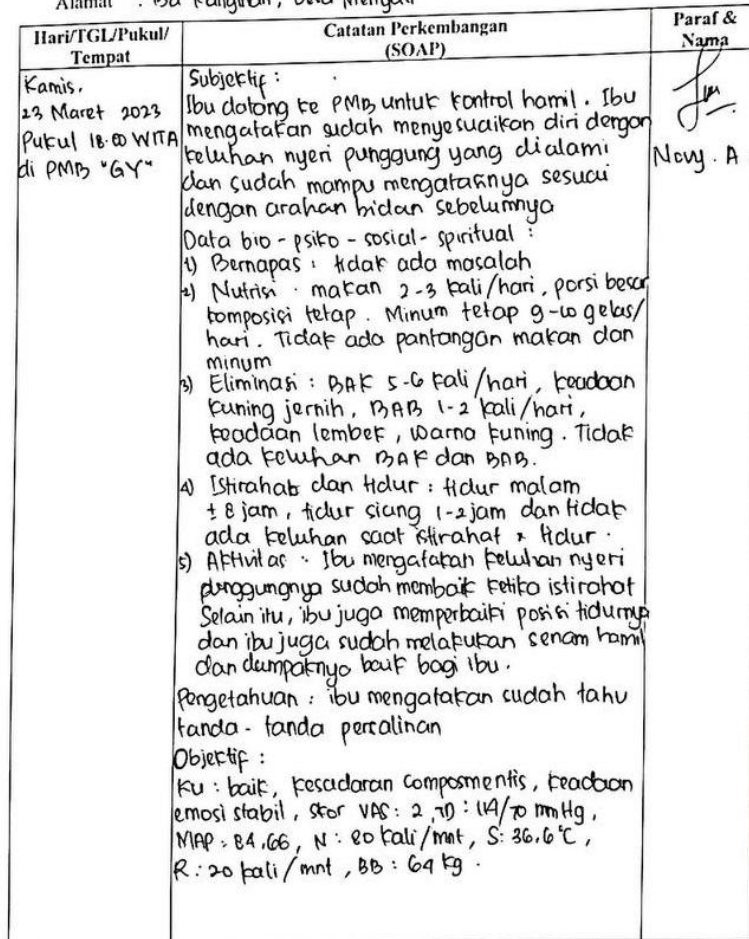 Alamat :
Hari/TGL/Pukul/
Tempat
Catatan Perkembangan
(SOAP)
Paraf &
Nama
Kamis,
23 Maret 2023
Pukul 18.00 WITA
di PMB "GY"
Subjektif :
Ibu datang ke PMB untuk kontrol hamil. Ibu
mengatakan sudah menyesuaikan diri dengan
keluhan nyeri punggung yang dialami
dan sudah mampu mengatasinya sesuai
dengan arahan bidan sebelumnya
Data bio-psiko-sosial-spiritual :
1) Bernapas : tidak ada masalah
2) Nutrisi : makan 2-3 kali/hari, porsi besar
komposisi tetap. Minum tetap 9-10 gelas/
hari. Tidak ada pantangan makan dan
minum
3) Eliminasi : BAK 5-6 kali/hari, keadaan
kuning jernih, BAB 1-2 kali/hari,
keadaan lembek, warna kuning. Tidak
ada keluhan BAK dan BAB.
4) Istirahat dan tidur : tidur malam
± 8 jam, tidur siang 1-2 jam dan tidak
ada keluhan saat istirahat + tidur.
5) Aktivitas : Ibu mengatakan keluhan nyeri
punggungnya sudah membaik ketika istirahat
Selain itu, ibu juga memperbaiki posisi tidurnya
dan ibu juga sudah melakukan senam hamil
dan dampaknya baik bagi ibu.
Pengetahuan : ibu mengatakan sudah tahu
tanda-tanda persalinan
Objektif :
KU : baik, kesadaran composmentis, keadaan
emosi stabil, skor VAS : 2, TD : 114/70 mmHg,
MAP : 84,66, N : 80 kali/mnt, S : 36,6°C,
R : 20 kali/mnt, BB : 64 kg.
Novy. A